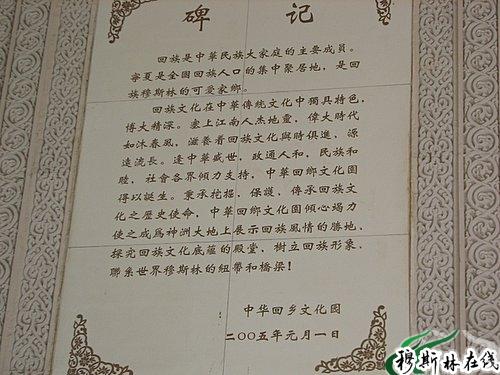 碑 记
回族是中華民族大家庭的主要成員。
寧夏是全囯回族人口的集中聚居地，是回
族穆斯林的可爱家鄉。
回族文化在中華傳統文化中獨具特色，
博大精深。塞上江南人杰地靈，偉大時代
如沐春風，滋養着回族文化與時俱進，源
遠流長。逢中華盛世，政通人和，民族和
睦，社會各界傾力支持，中華回鄉文化園
得以誕生。秉承挖掘，保護，傳承回族文
化之歷史使命，中華回鄉文化園傾心竭力
使之成爲神洲大地上展示回族風情的勝地、
探究回族文化底蘊的殿堂、樹立回族形象、
聯系世界穆斯林的紐帶和橋梁！
中华回乡文化園
二〇〇五年元月一日
穆斯林在线